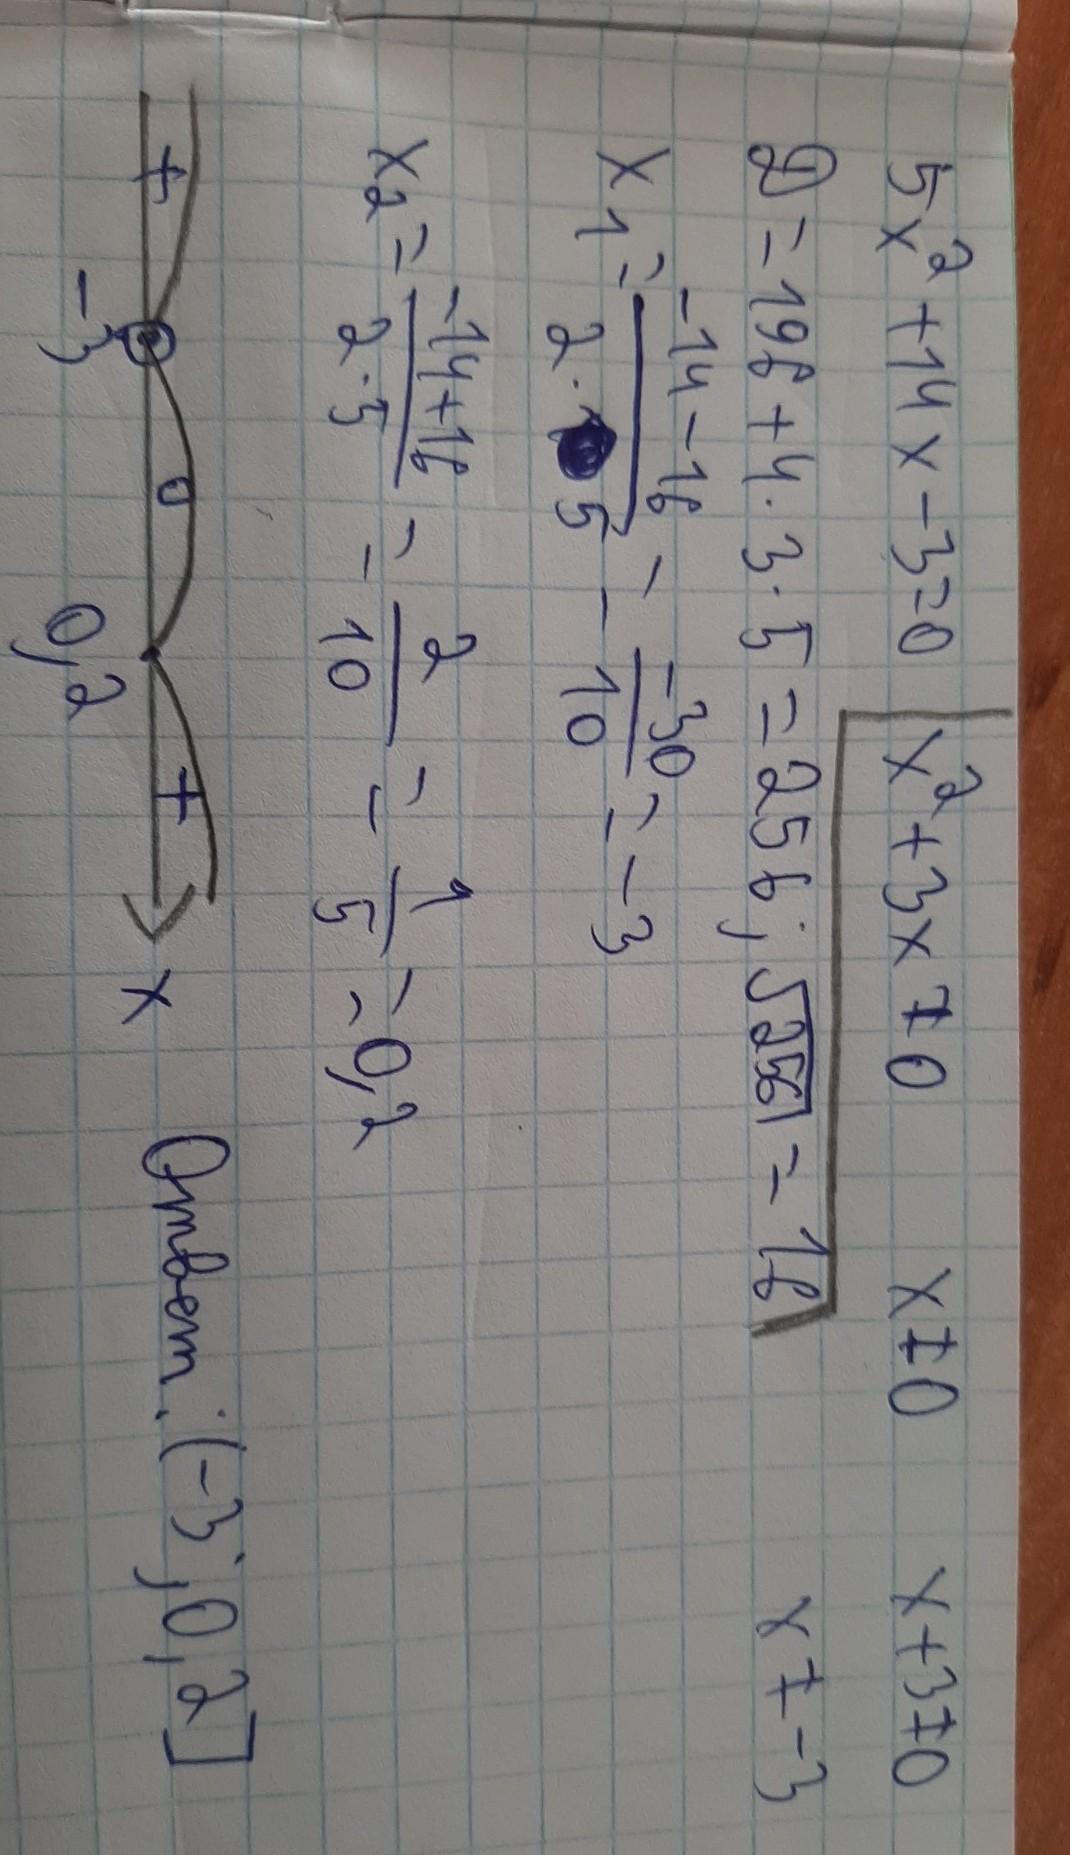 5x² + 14x - 3 = 0 x² + 3x ≠ 0 x ≠ 0 x + 3 ≠ 0
D = 196 + 4 · 3 · 5 = 256; √256 = 16 x ≠ -3
x₁ = (-14 - 16)/(2 · 5) = -30/10 = -3
x₂ = (-14 + 16)/(2 · 5) = 2/10 = 1/5 = 0,2
+ +
-3 0,2 x Ответ: (-3; 0,2]